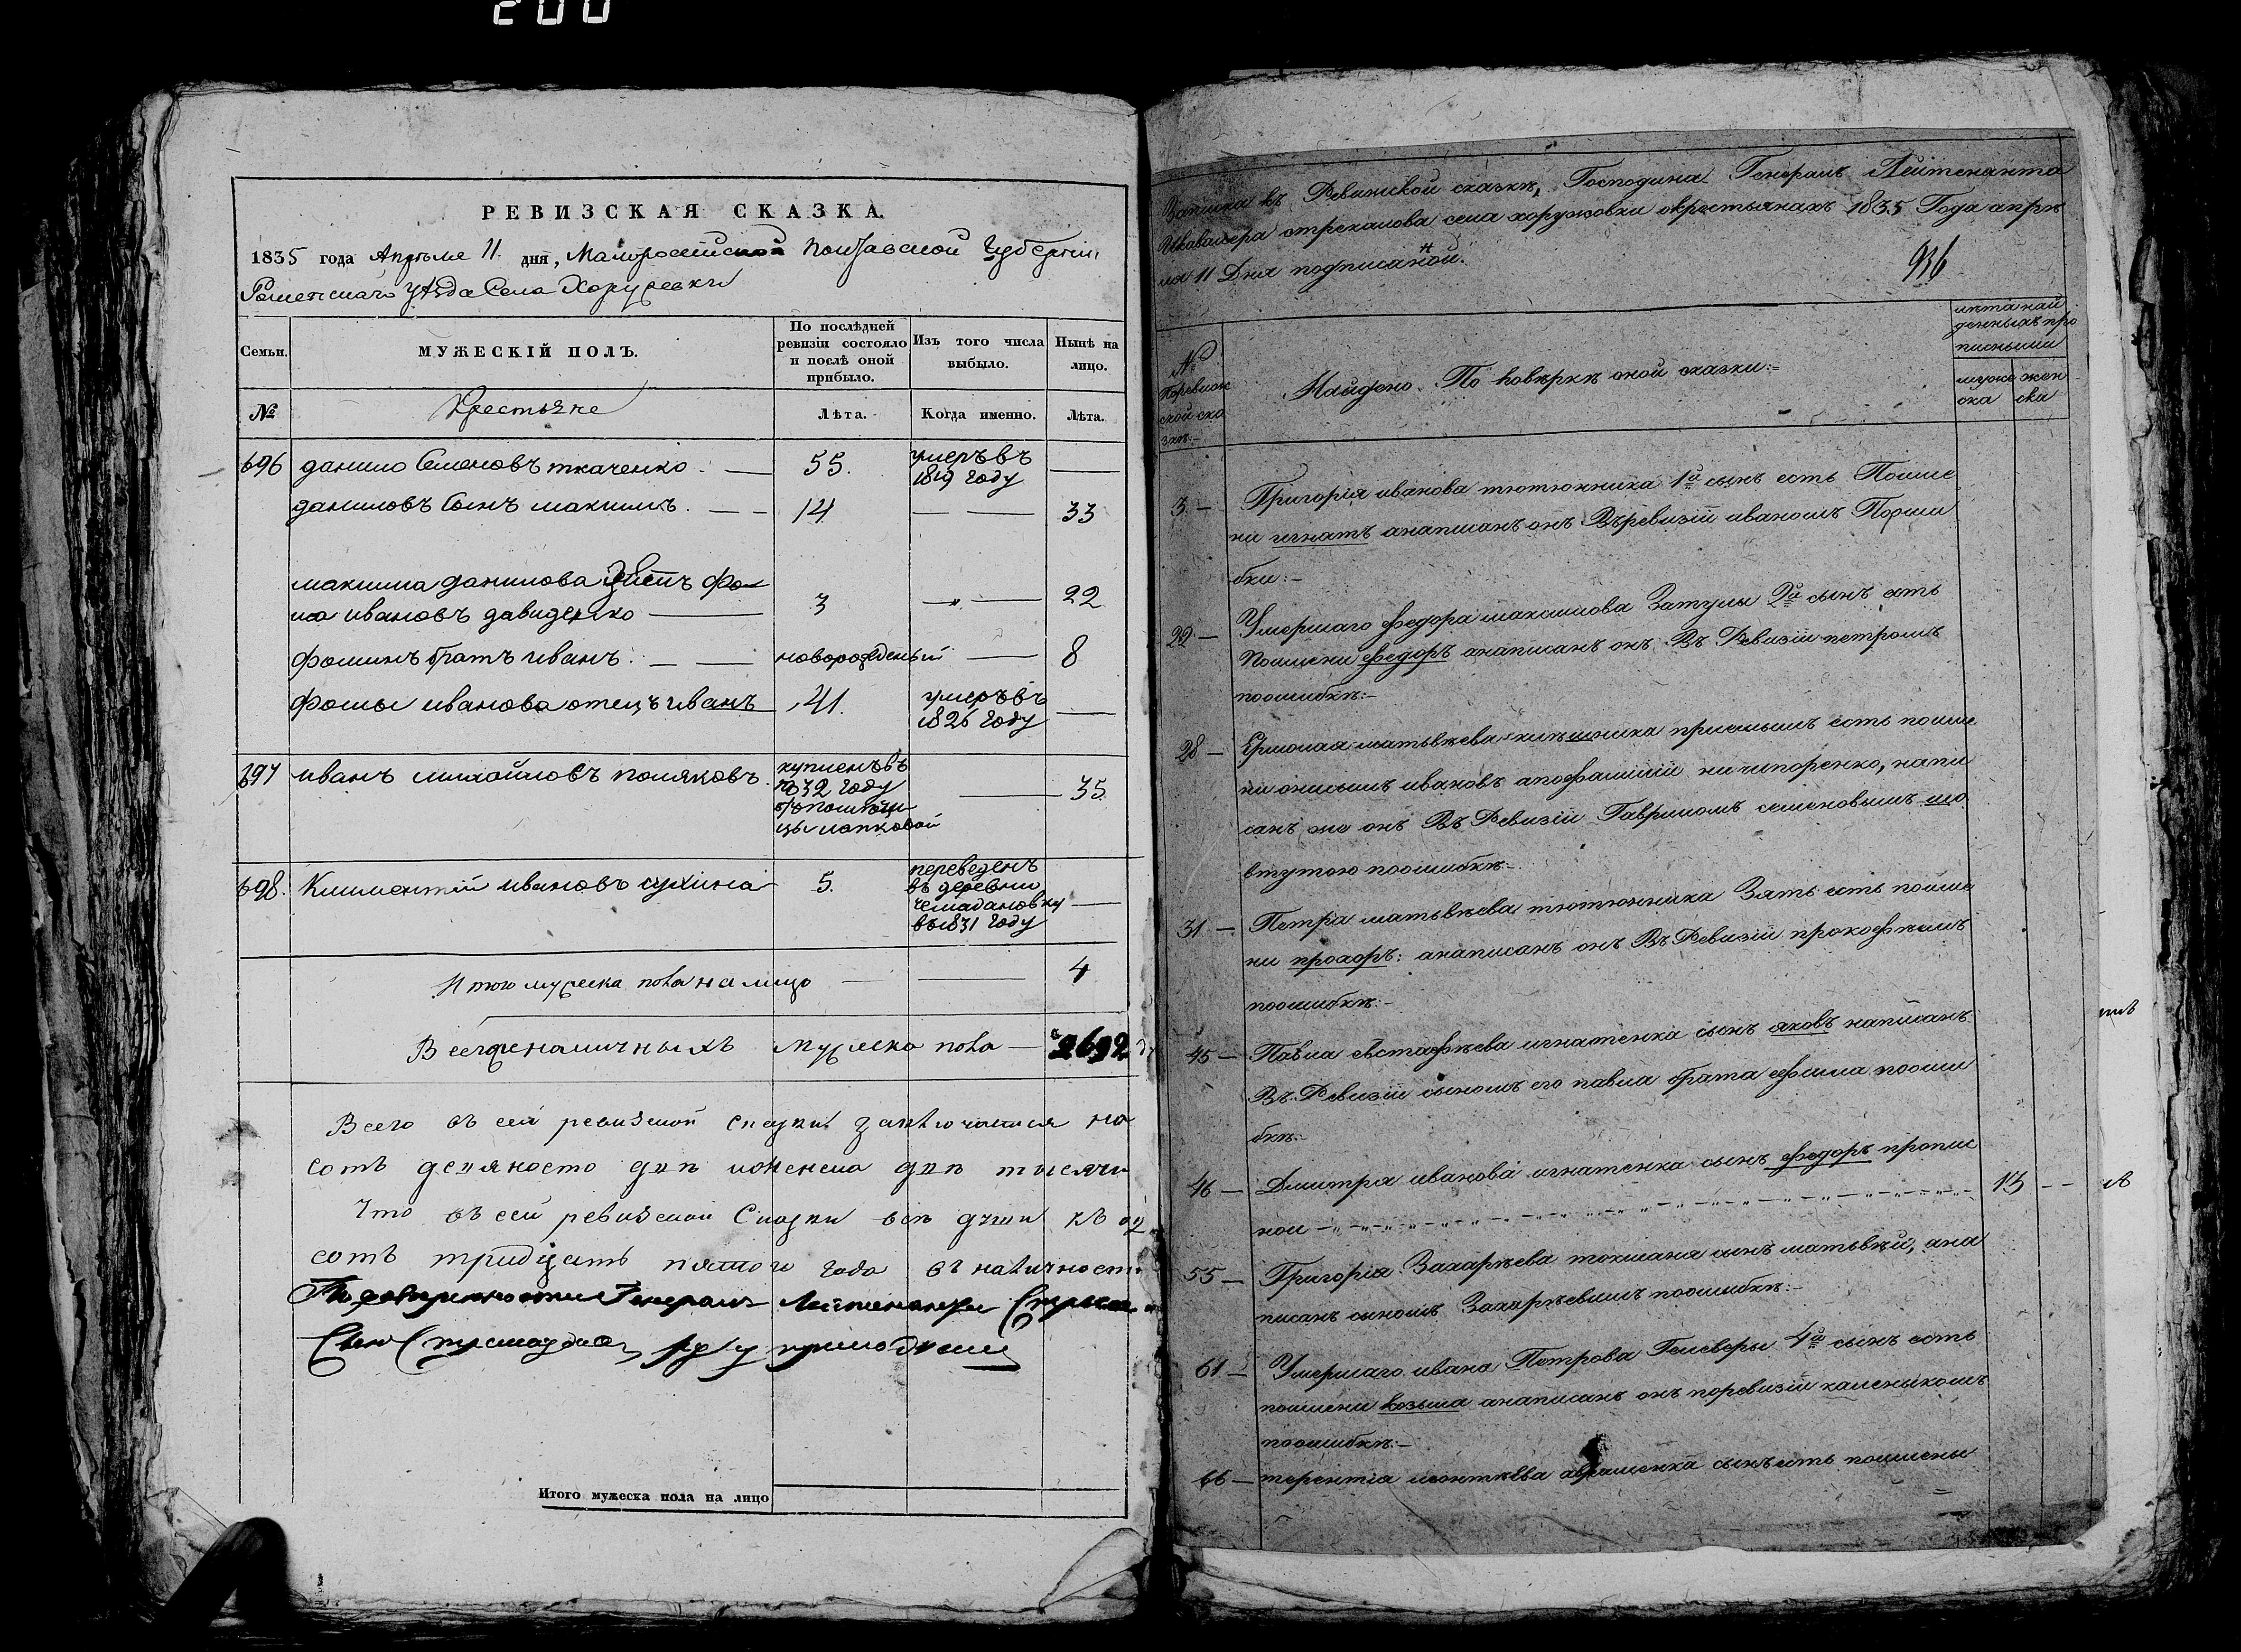 200
РЕВИЗСКАЯ СКАЗКА.
1835 года Апреля 11. дня, Малоросійской Полтавской Губерніи
Роменскаго уѣзда Села Хоружевки
Семьи.
МУЖЕСКІЙ ПОЛЪ.
По послѣдней ревизіи состояло и послѣ оной прибыло.
Изъ того числа выбыло.
Нынѣ на лицо.
№
Крестьяне
Лѣта.
Когда именно.
Лѣта.
696 данило Семеновъ ткаченко. — 55. умеръ въ 1819 году —
даниловъ Сынъ максимъ. — — 14 — — 33
максима данилова зять фо-
ма ивановъ давиденко — 3 —„— 22
фоминъ братъ иванъ. — — новорожденый — 8
фомы иванова отецъ иванъ 41. умеръ въ 1826 году —
697 иванъ михайловъ поляковъ. купленъ въ 1832 году от помѣщицы лапковой — 35
698. Климентій ивановъ сухина 5. переведенъ въ деревню чемадановку въ 1831 году —
Итого мужеска пола на лицо — — 4
Всего наличныхъ мужеска пола — 2692
Всего въ сей ревизской сказки заключается на
сотъ девяносто двѣ и женска двѣ тысячи
Что въ сей ревизской Сказки всѣ души къ
сотъ тридцать пятого года въ наличности
По доверенности Генералъ Лейтенанта
Итого мужеска пола на лицо
Записка къ Ревизской сказкѣ, Господина Генералъ Лейтенанта
Икавалера стрекалова села хоружовки окрестьянахъ 1835 Года апрѣ
ля 11 Дня подписаной. н
936
№ Поревизской сказкѣ:-
Найдено По повѣркѣ оной сказки:-
лѣта най
денныхъ про
писными
муже
ска
жен
ска
3. — Григорія иванова тютюнника 1й сынъ есть Поиме
ни игнатъ анаписанъ онъ Въревизіи иваномъ Пооши
бки:-
22 — Умершаго федора максимова Затулы 2й сынъ есть
Поимени федоръ анаписанъ онъ Въ Ревизіи петромъ
поошибкѣ:-
28 — Ермолая матвѣева приемышъ есть поиме
ни онисимъ ивановъ апофамиліи ничипоренко, напи
санъ же онъ Въ Ревизіи Гавриломъ семеновымъ шо
втутою поошибкѣ:-
31 — Петра матвѣева тютюнника Зять есть поиме
ни прохоръ: анаписанъ онъ Въ Ревизіи прокофѣемъ
поошибкѣ:-
45 — Павла евстафѣева игнатенка сынъ яковъ написанъ
Въ Ревизіи сыномъ его павла брата ефима пооши
бкѣ:-
46 — Дмитрія иванова игнатенка сынъ федоръ пропис
ной — — — 13 — —
55 — Григорія Захарѣева токманя сынъ матвѣй, ана
писанъ сыномъ Захарѣевымъ поошибкѣ:-
61 — Умершаго ивана Петрова Гелеверы 4й сынъ есть
поимени козьма анаписанъ онъ поревизіи калеником
поошибкѣ:-
66 — терентія леонтѣва аврашенка сынъ есть поимены